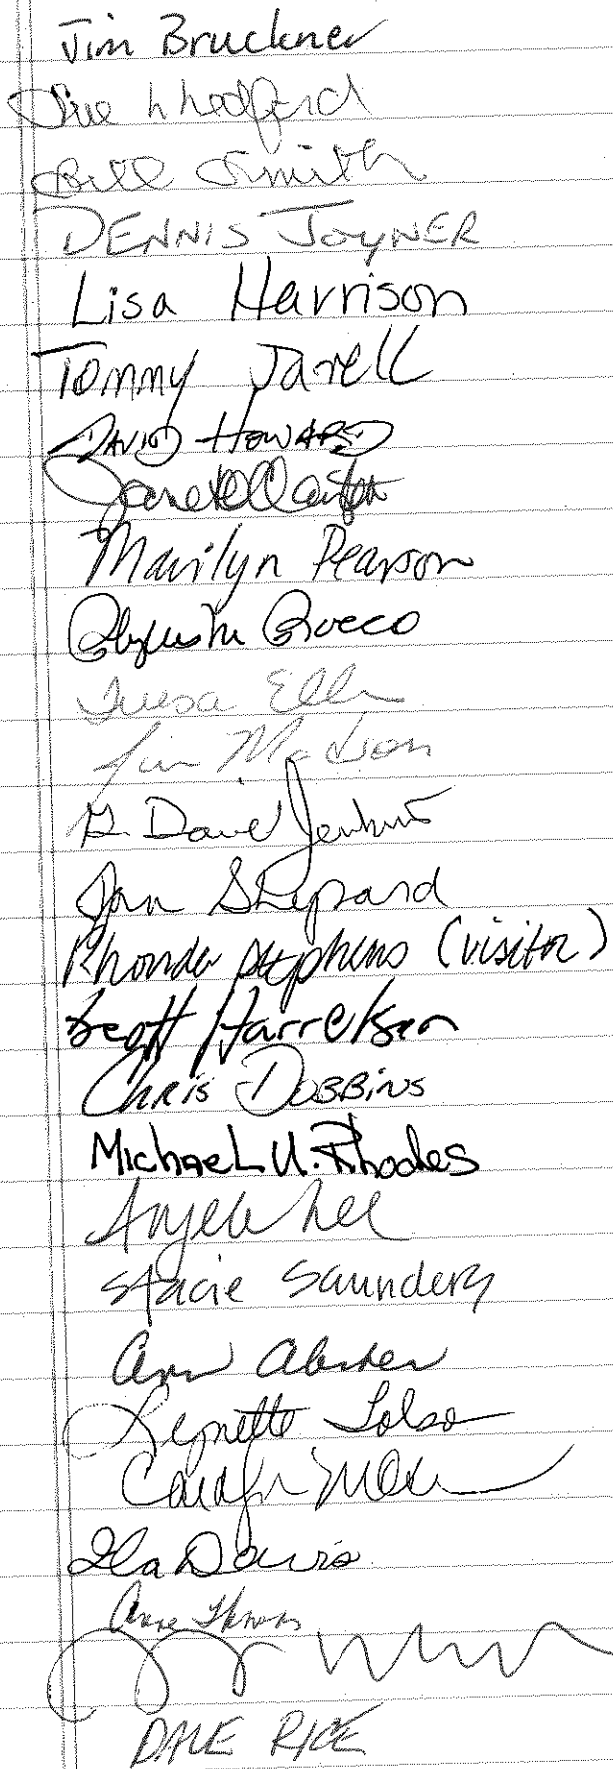 Jim Bruckner
Sue
Bill Smith
DENNIS JOYNER
Lisa Harrison
Tommy Jarrell
DAVID HOWARD
Janet Clayton
Marilyn Pearson
Rocco
Teresa Ellen
Jim Madson
G. David Jenkins
Jan Shepard
Rhonda Stephens (visitor)
Scott Harrelson
CHRIS DOBBINS
Michael U. Rhodes
Angela Lee
Stacie Saunders
Ann Absher
Lynette Tolson
Carolyn
Ila Davis
Anne Thomas
DALE RICE